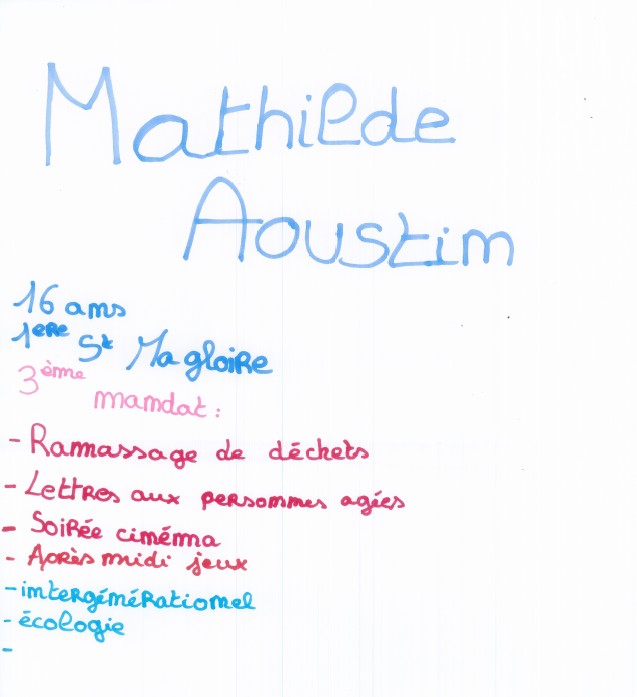 Mathilde
Aoustin
16 ans
1ère St Magloire
3ème mandat :
- Ramassage de déchets
- Lettres aux personnes agées
- Soirée cinéma
- Après midi jeux
- intergénérationel
- écologie
-